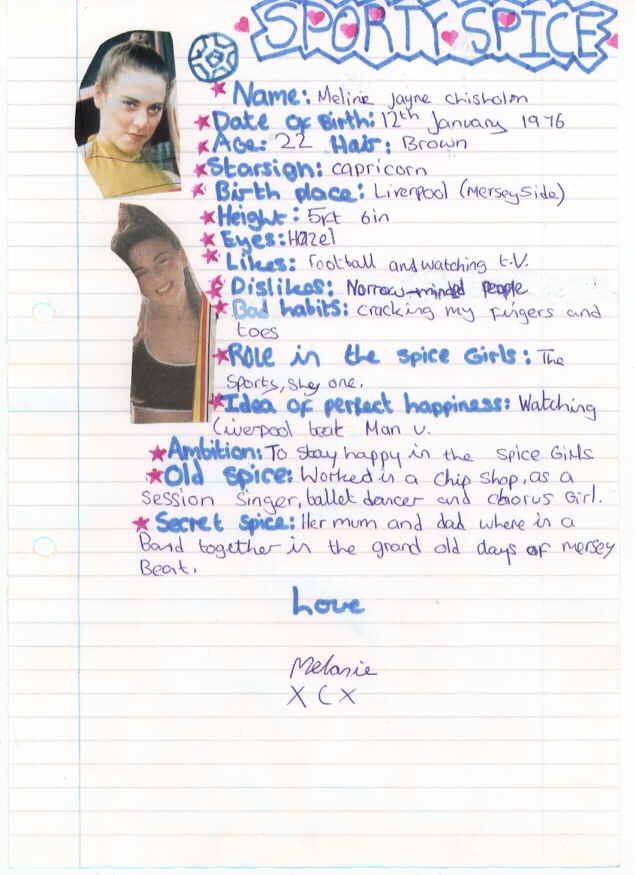 SPORTY SPICE
Name: Melinie Jayne Chisholm
Date of Birth: 12th January 1976
Age: 22 Hair: Brown
Starsign: Capricorn
Birth place: Liverpool (Merseyside)
Height: 5ft 6in
Eyes: Hazel
Likes: Football and watching t.V.
Dislikes: Norrow-minded people
Bad habits: Cracking my fingers and
toes
Role in the Spice Girls: The
Sports, shy one.
Idea of perfect happiness: Watching
Liverpool beat Man U.
Ambition: To stay happy in the Spice Girls
Old Spice: Worked in a Chip Shop, as a
Session Singer, ballet dancer and chorus Girl.
Secret Spice: Her mum and dad where in a
Band together in the grand old days of mersey
Beat.
Love
Melanie
X C X